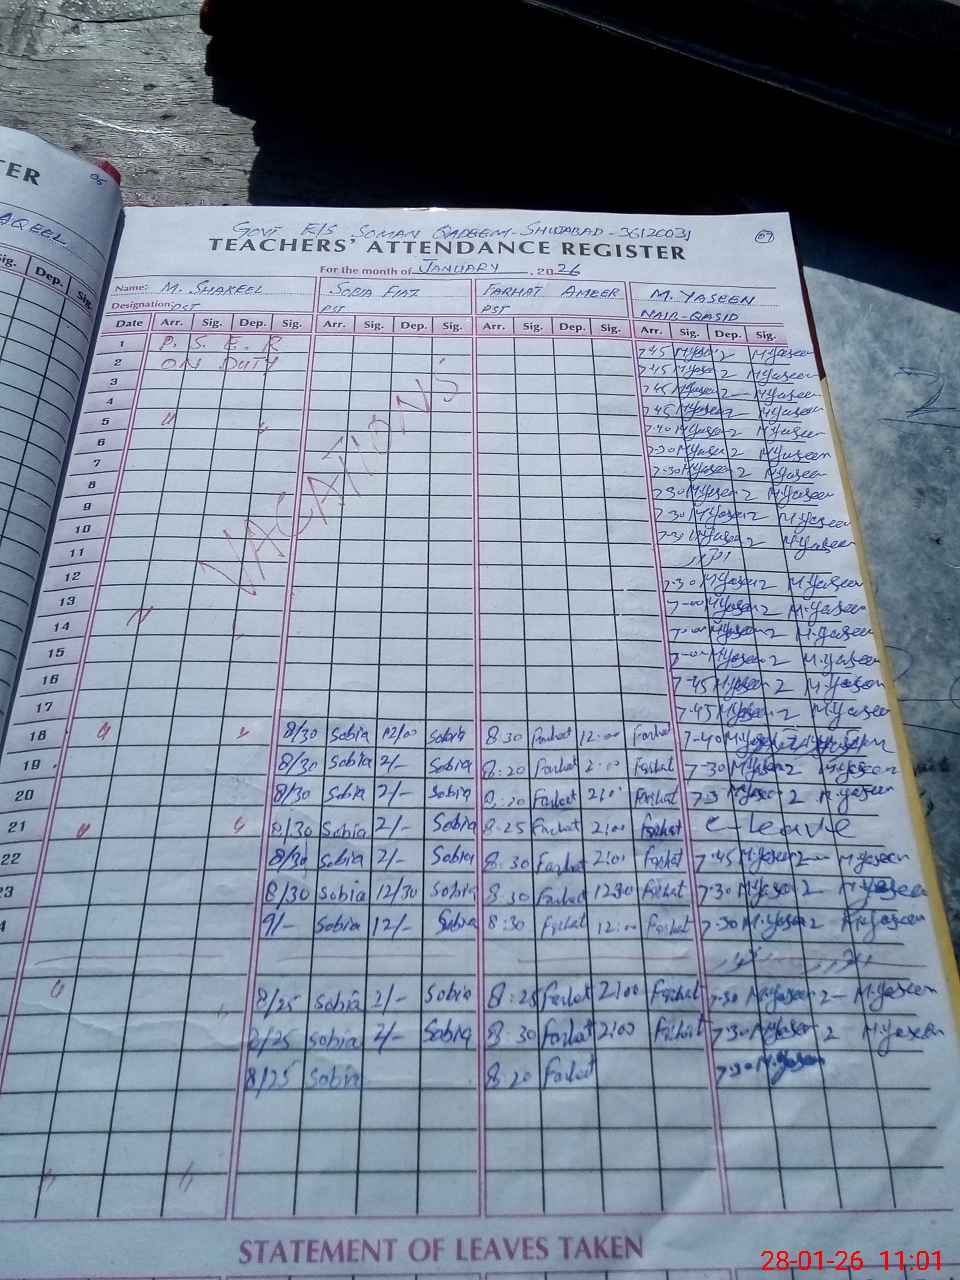 TER
05
AQEEL
Sig. Dep. Sig.
GOVT E/S SOMAN QADEEM-SHUJABAD-36120031
07
TEACHERS' ATTENDANCE REGISTER
For the month of JANUARY, 2026
Name: M. SHAKEEL SOBIA FIAZ FARHAT AMEER M. YASEEN
Designation: PST PST PST NAIB-QASID
Date Arr. Sig. Dep. Sig. Arr. Sig. Dep. Sig. Arr. Sig. Dep. Sig. Arr. Sig. Dep. Sig.
1 P. S. E. R 7-45 M.Yaseen 2 M.Yaseen
2 ON DUTY 7-45 M.Yaseen 2 M.Yaseen
3 7-45 M.Yaseen 2 M.Yaseen
4 7-45 M.Yaseen 2 M.Yaseen
5 " " M.Yaseen 2 M.Yaseen
6 M.Yaseen 2 M.Yaseen
7 7-30 M.Yaseen 2 M.Yaseen
8 7-30 M.Yaseen 2 M.Yaseen
9 7-30 M.Yaseen 2 M.Yaseen
10 7-30 M.Yaseen 2 M.Yaseen
11
VACATIONS
12 7-30 M.Yaseen 2 M.Yaseen
13 7-00 M.Yaseen 2 M.Yaseen
14 7-00 M.Yaseen 2 M.Yaseen
15 7-00 M.Yaseen 2 M.Yaseen
16 7-45 M.Yaseen 2 M.Yaseen
17 7-45 M.Yaseen 2 M.Yaseen
18 " " 8/30 Sobia 12/00 Sobia 8:30 Farhat 12:00 Farhat 7-40
19 8/30 Sobia 2/- Sobia 8:20 Farhat 2:00 Farhat 7-30 M.Yaseen 2 M.Yaseen
20 8/30 Sobia 2/- Sobia 8:20 Farhat 2:00 Farhat M.Yaseen 2 M.Yaseen
21 " " 8/30 Sobia 2/- Sobia 8:25 Farhat 2:00 Farhat C-leave
22 8/30 Sobia 2/- Sobia 8:30 Farhat 2:00 Farhat 7-45 M.Yaseen 2 M.Yaseen
23 8/30 Sobia 12/30 Sobia 8:30 Farhat 12:30 Farhat 7-30 M.Yaseen 2 M.Yaseen
4 9/- Sobia 12/- Sobia 8:30 Farhat 12:00 Farhat 7-30 M.Yaseen 2 M.Yaseen
" 8/25 Sobia 2/- Sobia 8:25 Farhat 2:00 Farhat 7-30 M.Yaseen 2 M.Yaseen
8/25 Sobia 2/- Sobia 8:30 Farhat 2:00 Farhat 7-30 M.Yaseen 2 M.Yaseen
8/25 Sobia 8:20 Farhat 7-30 M.Yaseen
" "
STATEMENT OF LEAVES TAKEN
28-01-26 11:01